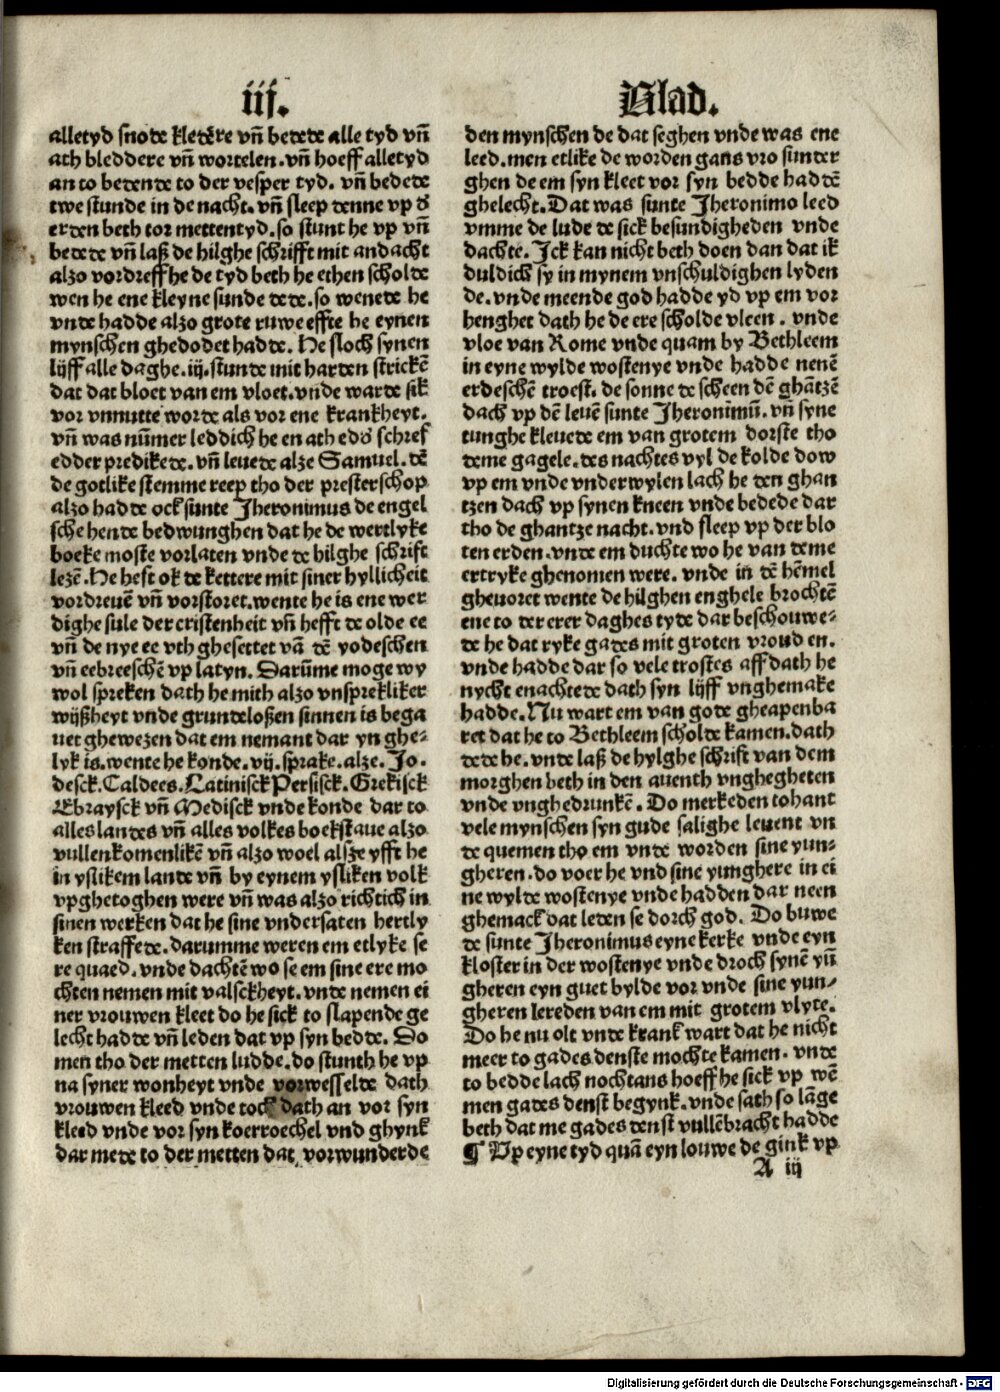 iij.
alletyd snode kledēre vn̄ bedede alle tyd vn̄
ath bleddere vn̄ wortelen. vn̄ hoeff alletyd
an to bedende to der vesper tyd. vn̄ bedede
twe stunde in de nacht. vn̄ sleep denne vp d̄
erden beth tor mettentyd. so stunt he vp vn̄
bedede vn̄ laß de hilghe schrifft mit andacht
alzo vordreff he de tyd beth he ethen scholde
wen he ene kleyne sunde dede. so wenede he
vnde hadde alzo grote ruwe effte he eynen
mynschen ghedodet hadde. He sloch synen
lijff alle daghe. iij. stunde mit harden strickē
dat dat bloet van em vloet. vnde warde sik
vor vnnutte worde als vor ene krankheyt.
vn̄ was nūmer leddich he en ath edd̄ schref
edder predikede. vn̄ leuede alze Samuel. dē
de gotlike stemme reep tho der presterschop
alzo hadde ock sunte Jheronimus de engel
sche hende bedwunghen dat he de wertlyke
boeke moste vorlaten vnde de hilghe schrift
lezē. He heft ok de kettere mit siner hyllicheit
vordreuē vn̄ vorstoret. wente he is ene wer
dighe sule der cristenheit vn̄ hefft de olde ee
vn̄ de nye ee vth ghesettet vā dē yodeschen
vn̄ eebreeschē vp latyn. Darūme moge wy
wol spreken dath he mith alzo vnsprekliker
wijßheyt vnde grundeloßen sinnen is bega
uet ghewezen dat em nemant dar yn ghe-
lyk is. wente he konde. vij. sprake. alze. Jo.
desck. Caldees. Latinisck Persisck. Grekisck
Ebraysck vn̄ Medisck vnde konde dar to
alles landes vn̄ alles volkes boekstaue alzo
vullenkomenlikē vn̄ alzo woel alsze yfft he
in yslikem lande vn̄ by eynem ysliken volk
vpghetoghen were vn̄ was alzo richtich in
sinen werken dat he sine vndersaten hertly
ken straffede. darumme weren em etlyke se
re quaed. vnde dachtē wo se em sine ere mo
chten nemen mit valsckheyt. vnde nemen ei
ner vrouwen kleet do he sick to slapende ge
lecht hadde vn̄ leden dat vp syn bedde. Do
men tho der metten ludde. do stunth he vp
na syner wonheyt vnde vorwesselde dath
vrouwen kleed vnde tock dath an vor syn
kleed vnde vor syn koerroechel vnd ghynk
dar mede to der metten dat vorwunderde
Blad.
den mynschen de dat seghen vnde was ene
leed. men etlike de worden gans vro sunder
ghen de em syn kleet vor syn bedde haddē
ghelecht. Dat was sunte Jheronimo leed
vmme de lude de sick besundigheden vnde
dachte. Jck kan nicht beth doen dan dat ik
duldich sy in mynem vnschuldighen lyden
de. vnde meende god hadde yd vp em vor
henghet dath he de ere scholde vleen. vnde
vloe van Rome vnde quam by Bethleem
in eyne wylde wostenye vnde hadde nenē
erdeschē troest. de sonne de scheen dē ghātzē
dach vp dē leuē sunte Jheronimū. vn̄ syne
tunghe kleuede em van grotem dorste tho
deme gagele. des nachtes vyl de kolde dow
vp em vnde vnderwylen lach he den ghan
tzen dach vp synen kneen vnde bedede dar
tho de ghantze nacht. vnd sleep vp der blo
ten erden. vnde em duchte wo he van deme
ertryke ghenomen were. vnde in dē hēmel
gheuoret wente de hilghen enghele brochtē
ene to der erer daghes tyde dar beschouwe-
de he dat ryke gades mit groten vrouden.
vnde hadde dar so vele trostes aff dath he
nycht enachtede dath syn lijff vnghemake
hadde. Nu wart em van gode gheapenba
ret dat he to Bethleem scholde kamen. dath
dede he. vnde laß de hylghe schrift van dem
morghen beth in den auenth vnghegheten
vnde vnghedrunkē. Do merkeden tohant
vele mynschen syn gude salighe leuent vn
de quemen tho em vnde worden sine yun-
gheren. do voer he vnd sine yunghere in ei
ne wylde wostenye vnde hadden dar neen
ghemack dat leden se dorch god. Do buwe
de sunte Jheronimus eyne kerke vnde eyn
kloster in der wostenye vnde droch synē yū
gheren eyn guet bylde vor vnde sine yun-
gheren lereden van em mit grotem vlyte.
Do he nu olt vnde krank wart dat he nicht
meer to gades denste mochte kamen. vnde
to bedde lach nochtans hoeff he sick vp wē
men gades denst begynk. vnde sath so lāge
beth dat me gades denst vullēbracht hadde
¶ Vp eyne tyd quā eyn louwe de gink vp
A iij
Digitalisierung gefördert durch die Deutsche Forschungsgemeinschaft - DFG